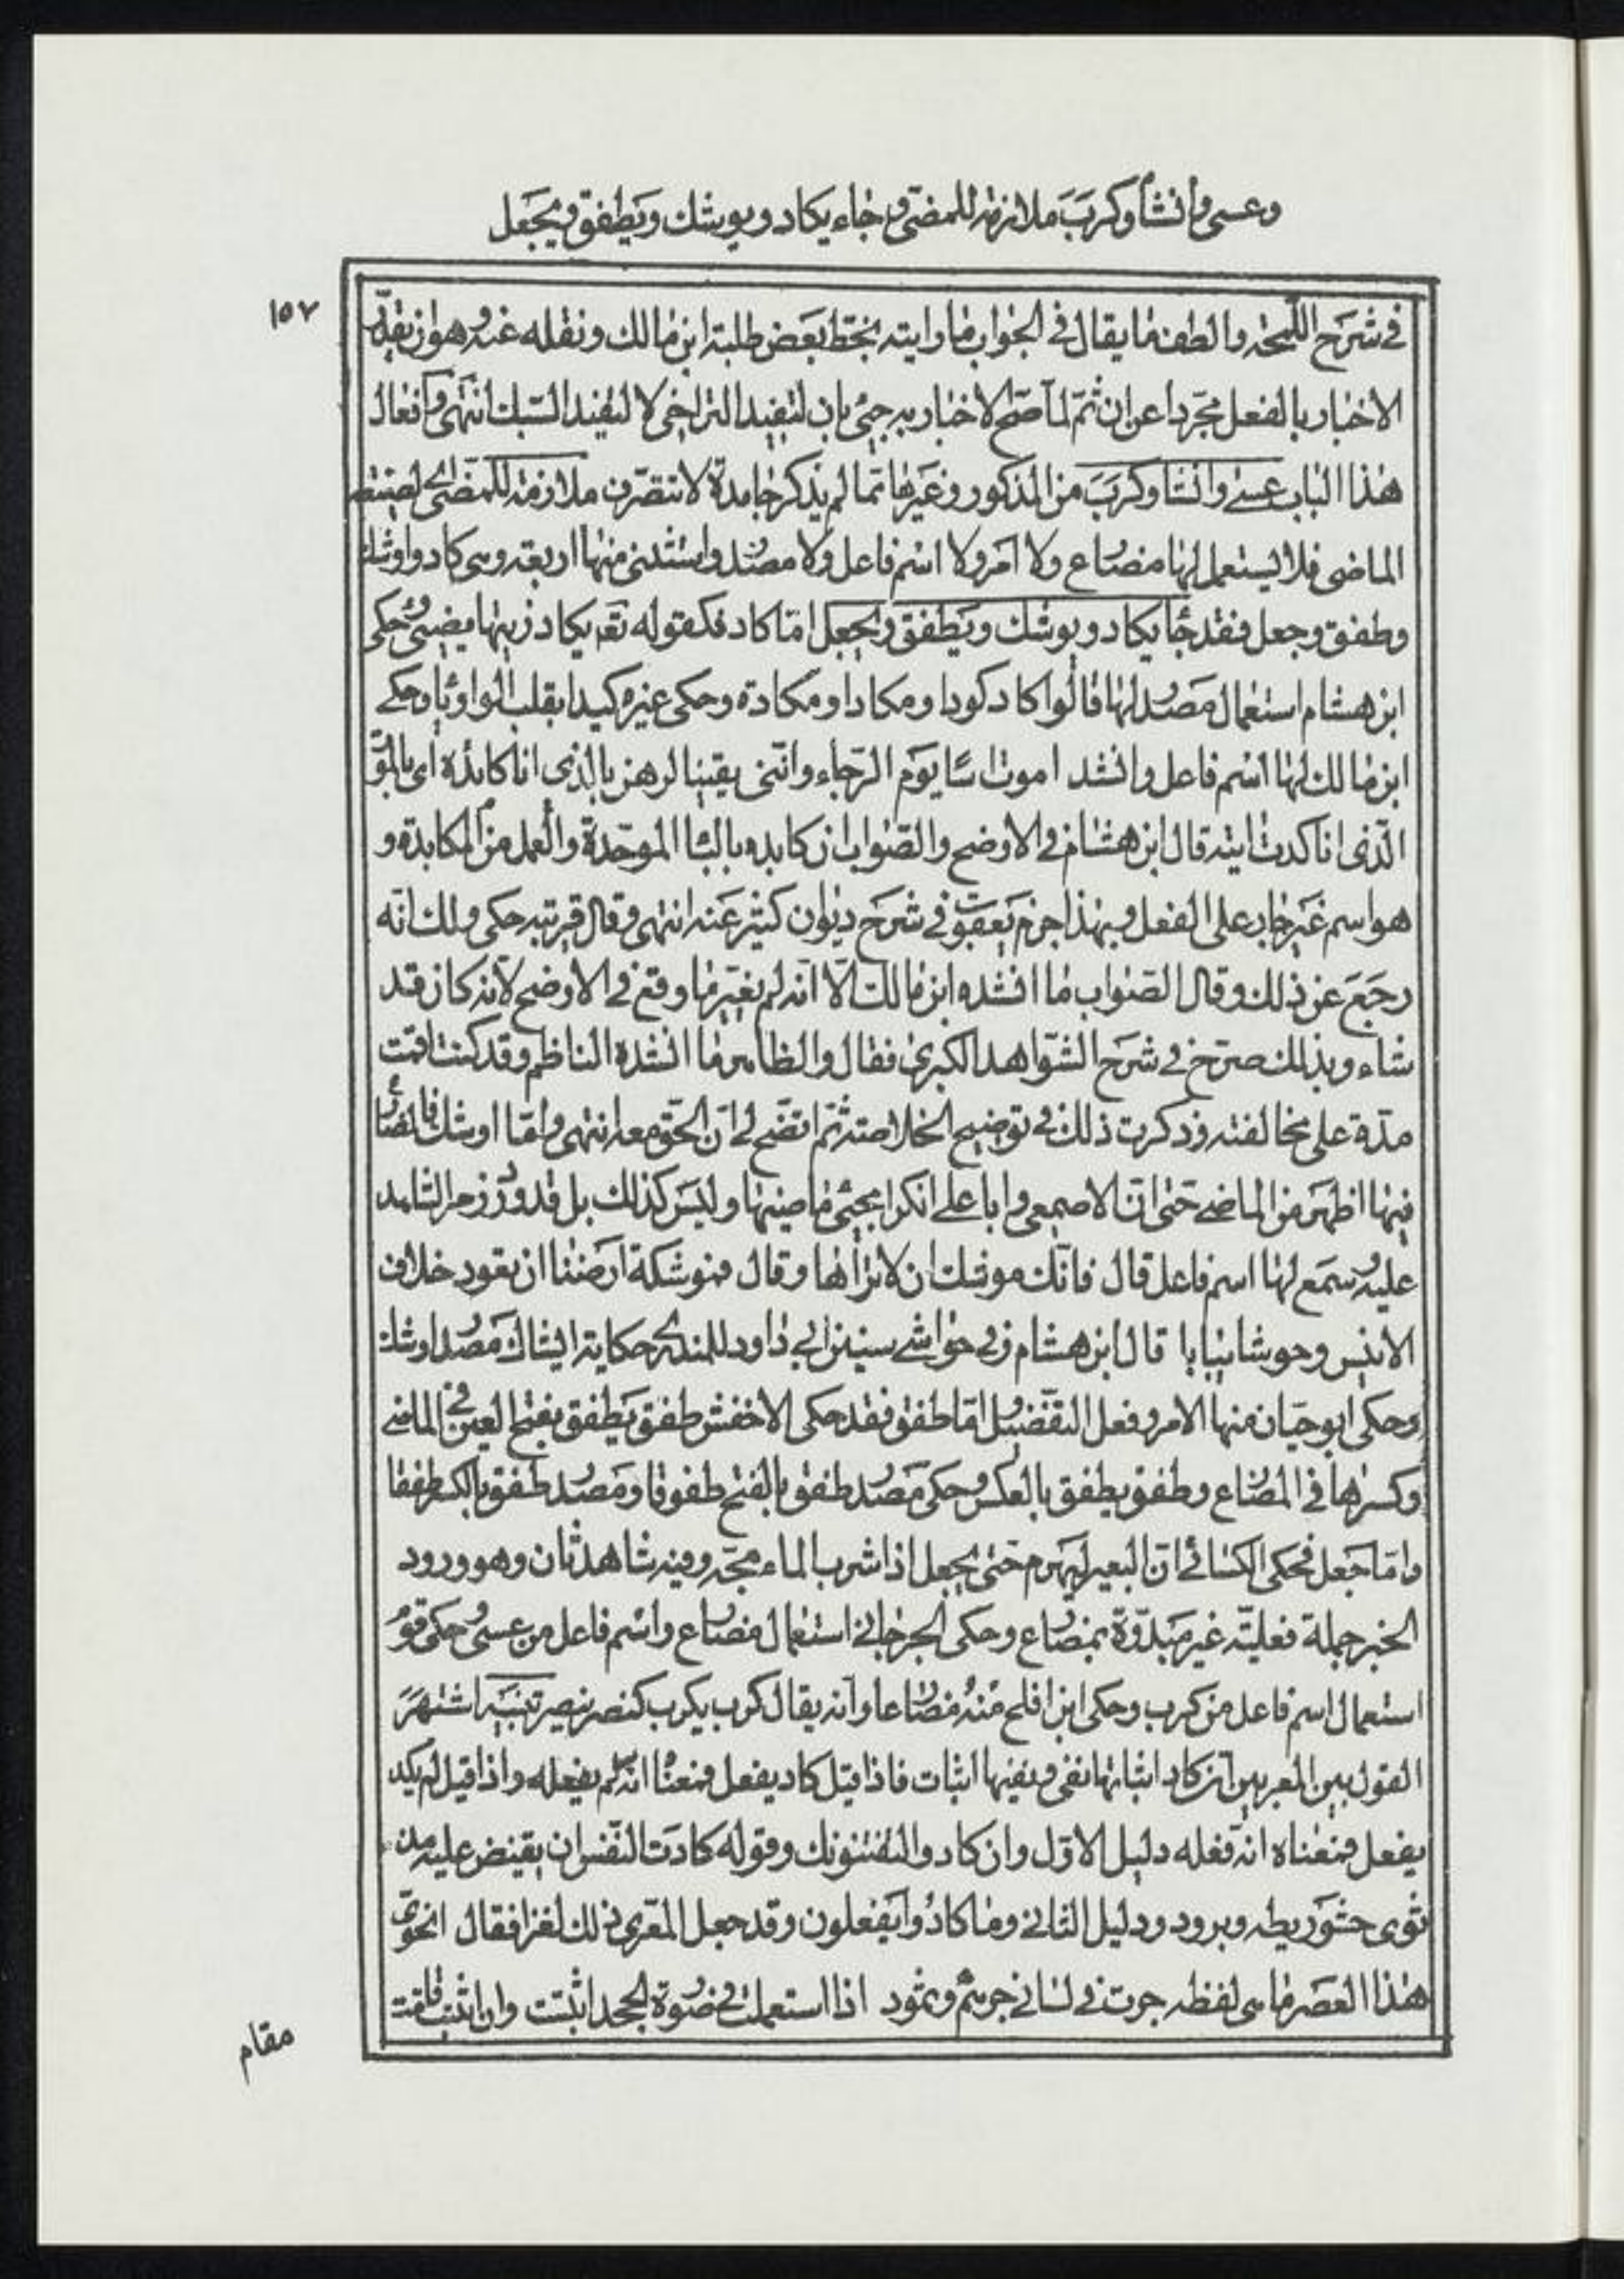 وعسى وانشأ وكرب ملازمة للمضى وجاء يكاد ويوشك ويطفق ويجعل
١٥٧
فى شرح اللمحة والطف ما يقال فى الجواب ما رايته بخط بعض طلبة ابن مالك ونقله عنه وهو ان يقدر
الاخبار بالفعل مجردا عن ان ثم لما صح الاخبار به جىء بان لتفيد التراخى لا لتفيد السبك انتهى وافعال
هذا الباب عسى وانشا وكرب من المذكور وغيرها مما لم يذكر جامدة لا تتصرف ملازمة للمضى اى لصيغة
الماضى فلا يستعمل لها مضارع ولا امر ولا اسم فاعل ولا مصدر واستثنى منها اربعة وهى كاد واوشك
وطفق وجعل فقد جا يكاد ويوشك ويطفق ويجعل اما كاد فكقوله تع يكاد زيتها يضىء وحكى
ابن هشام استعمال مصدر لها قالوا كاد كودا ومكادا ومكادة وحكى غيره كيدا بقلب الواو يا وحكى
ابن مالك لها اسم فاعل وانشد اموت اسًا يوم الرجاء واننى يقينا لرهن بالذى انا كائد اى بالموت
الذى انا كدت ايته قال ابن هشام فى الاوضح والصواب ان كابد بالبا الموحدة والعمل من المكابدة و
هو اسم غير جار على الفعل وبهذا جزم يعقوب فى شرح ديوان كثير عنه انتهى وقال قريبه حكى ولك انه
رجع عن ذلك وقال الصواب ما انشده ابن مالك الا انه لم يغير ما وقع فى الاوضح لانه كان قد
شاء وبذلك صرح فى شرح الشواهد الكبرى فقال والظاهر ما انشده الناظم وقد كنت اقمت
مدة على مخالفته وذكرت ذلك فى توضيح الخلاصة ثم اتضح لى ان الحق معه انتهى واما اوشك فالمضارع
فيها اظهر من الماضى حتى ان الاصمعى وابا على انكرا مجىء ماضيها وليس كذلك بل قد ورد ومر الشاهد
عليه وسمع لها اسم فاعل قال فانك موشك ان لا تراها وقال فموشكة ارضنا ان تعود خلاف
الانيس وحوشا يبابا قال ابن هشام وفى حواشى سنن ابى داود للمنذرى حكاية ايشاك مصدر اوشك
وحكى ابو حيان منها الامر وفعل التفضيل اما طفق فقد حكى الاخفش طفق يطفق بفتح العين فى الماضى
وكسرها فى المضارع وطفق يطفق بالعكس وحكى مصدر طفق بالفتح طفوقا ومصدر طفق بالكسر طفقا
واما جعل فحكى الكسائى ان البعير ليهرم حتى يجعل اذا شرب الماء مجه وفيه شاهد ثان وهو ورود
الخبر جملة فعلية غير مبدوة بمضارع وحكى الجرجانى استعمال مضارع واسم فاعل من عسى وحكى قوم
استعمال اسم فاعل من كرب وحكى ابن افلح منه مضارعا وانه يقال كرب يكرب كنصر ينصر تنبيه اشتهر
القول بين المعربين ان كاد اثباتها نفى ونفيها اثبات فاذا قيل كاد يفعل فمعنا انه لم يفعله واذا قيل لم يكد
يفعل فمعناه انه فعله دليل الاول وان كادوا ليفتنونك وقوله كادت النفس ان تفيض عليه مذ
ثوى حشو ريطه وبرود ودليل الثانى وما كادوا يفعلون وقد جعل المعرى ذلك لغزا فقال انحوى
هذا العصر ما هى لفظه جرت فى لسانى جرهم وثمود اذا استعملت فى صورة الجحد اثبتت وان اثبتت قامت
مقام